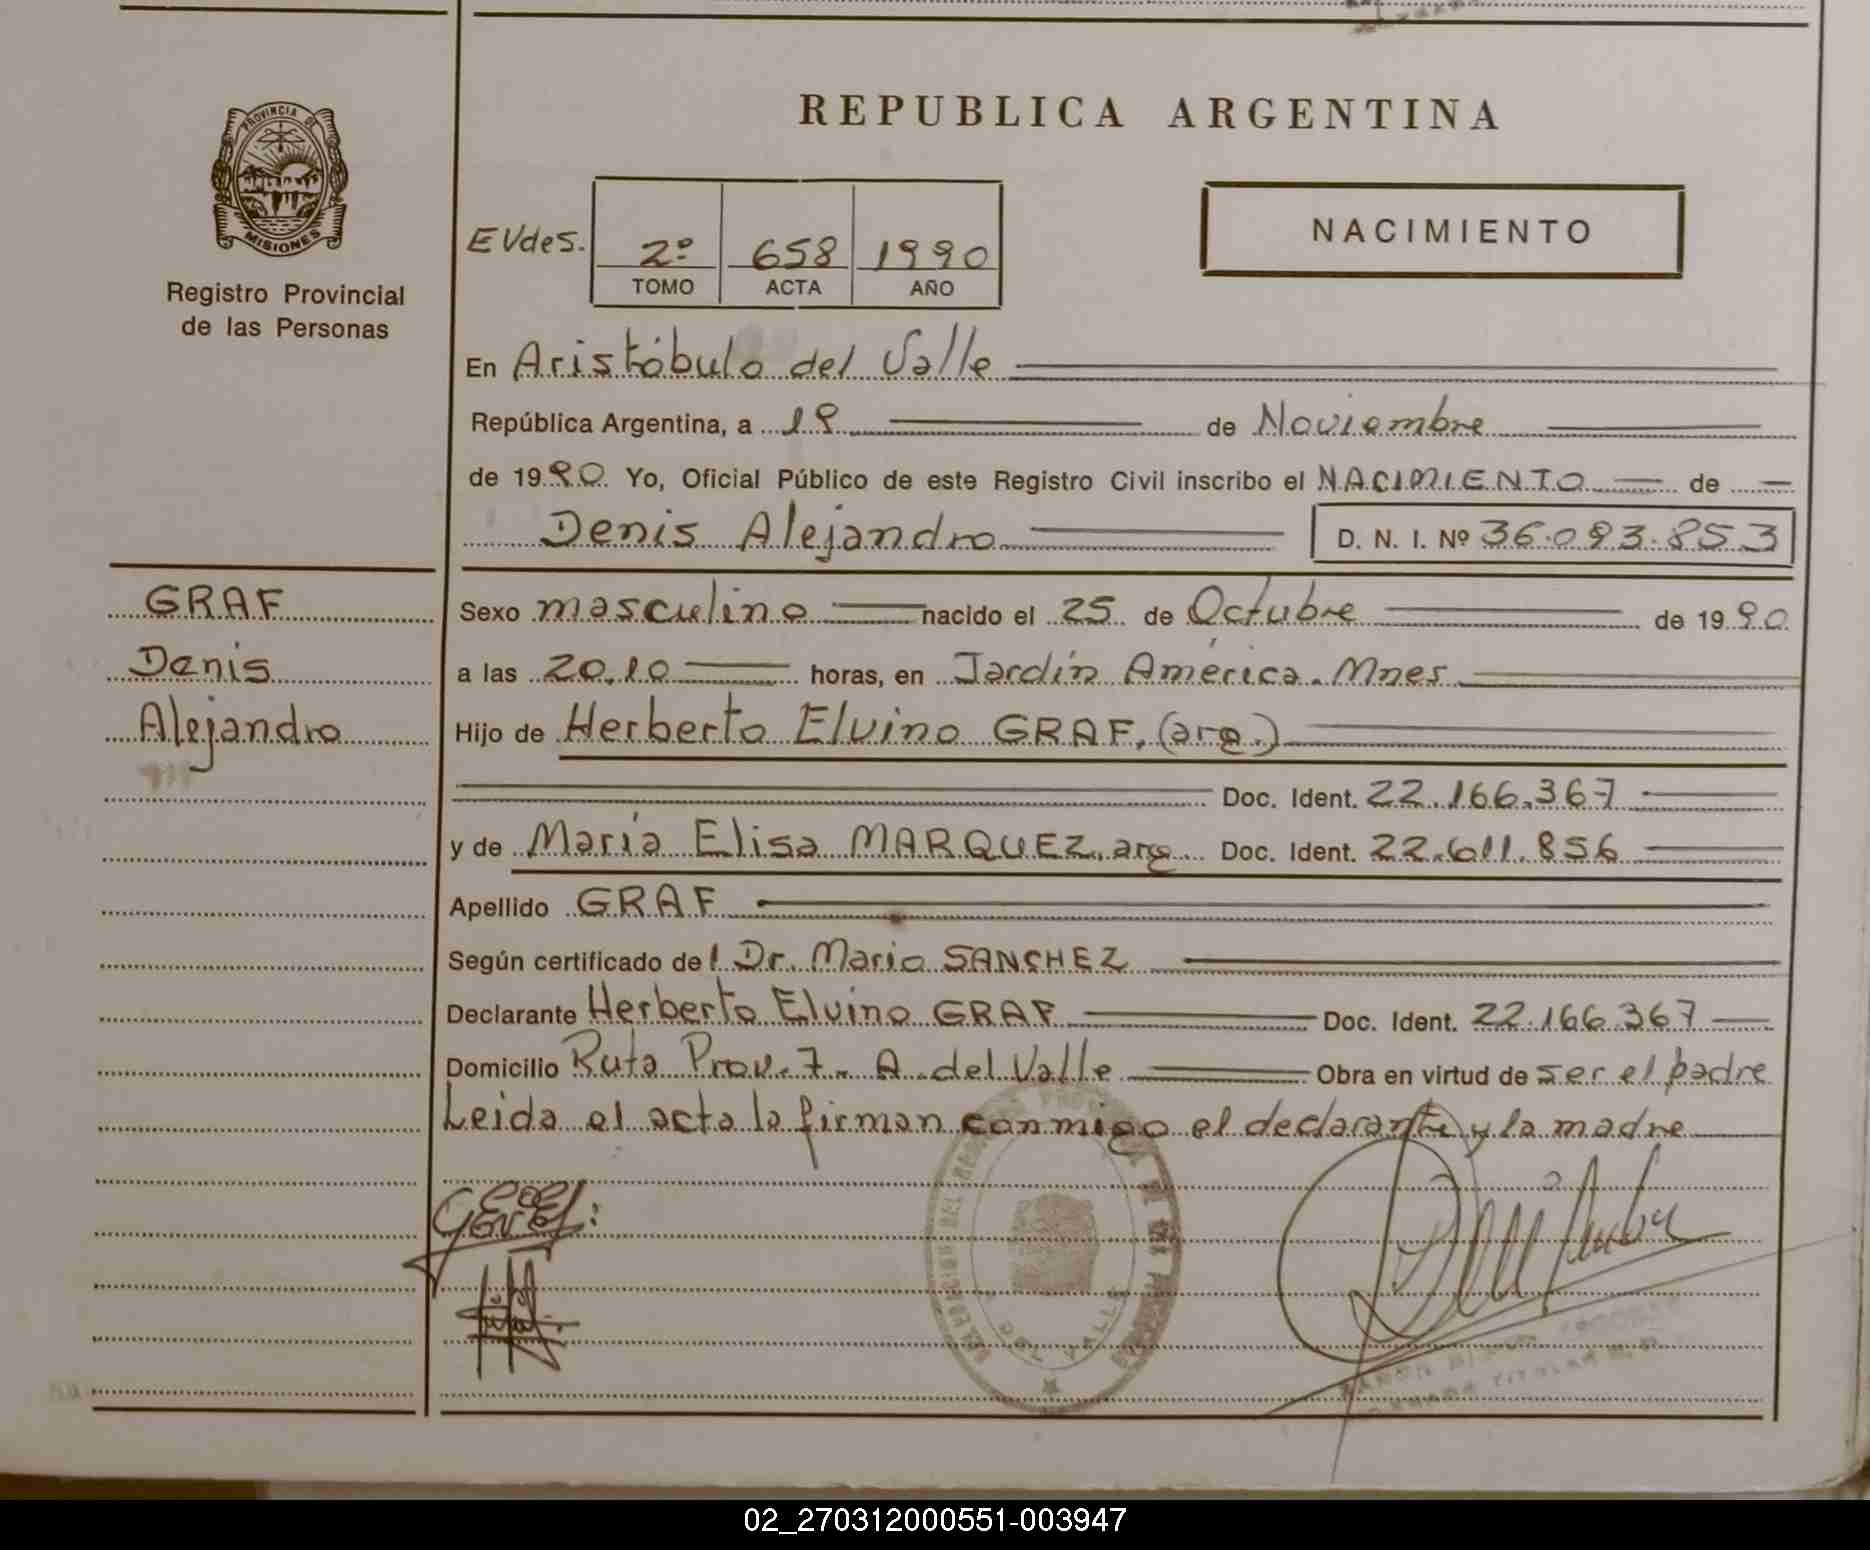 REPUBLICA ARGENTINA
PROVINCIA DE
MISIONES
Registro Provincial
de las Personas
EVdes.
2º 658 1990
TOMO ACTA AÑO
NACIMIENTO
En Aristóbulo del Valle
República Argentina, a 19 de Noviembre
de 1990. Yo, Oficial Público de este Registro Civil inscribo el NACIMIENTO de
Denis Alejandro D. N. I. Nº 36.093.853
GRAF
Denis
Alejandro
Sexo masculino nacido el 25 de Octubre de 1990
a las 20,10 horas, en Jardín América. Mnes
Hijo de Herberto Elvino GRAF, (arg.)
Doc. Ident. 22.166.367
y de María Elisa MARQUEZ, arg. Doc. Ident. 22.611.856
Apellido GRAF
Según certificado del Dr. Mario SANCHEZ
Declarante Herberto Elvino GRAF Doc. Ident. 22.166.367
Domicilio Ruta Prov. 7. A. del Valle Obra en virtud de ser el padre
Leida el acta la firman conmigo el declarante y la madre
DEL VALLE
02_270312000551-003947